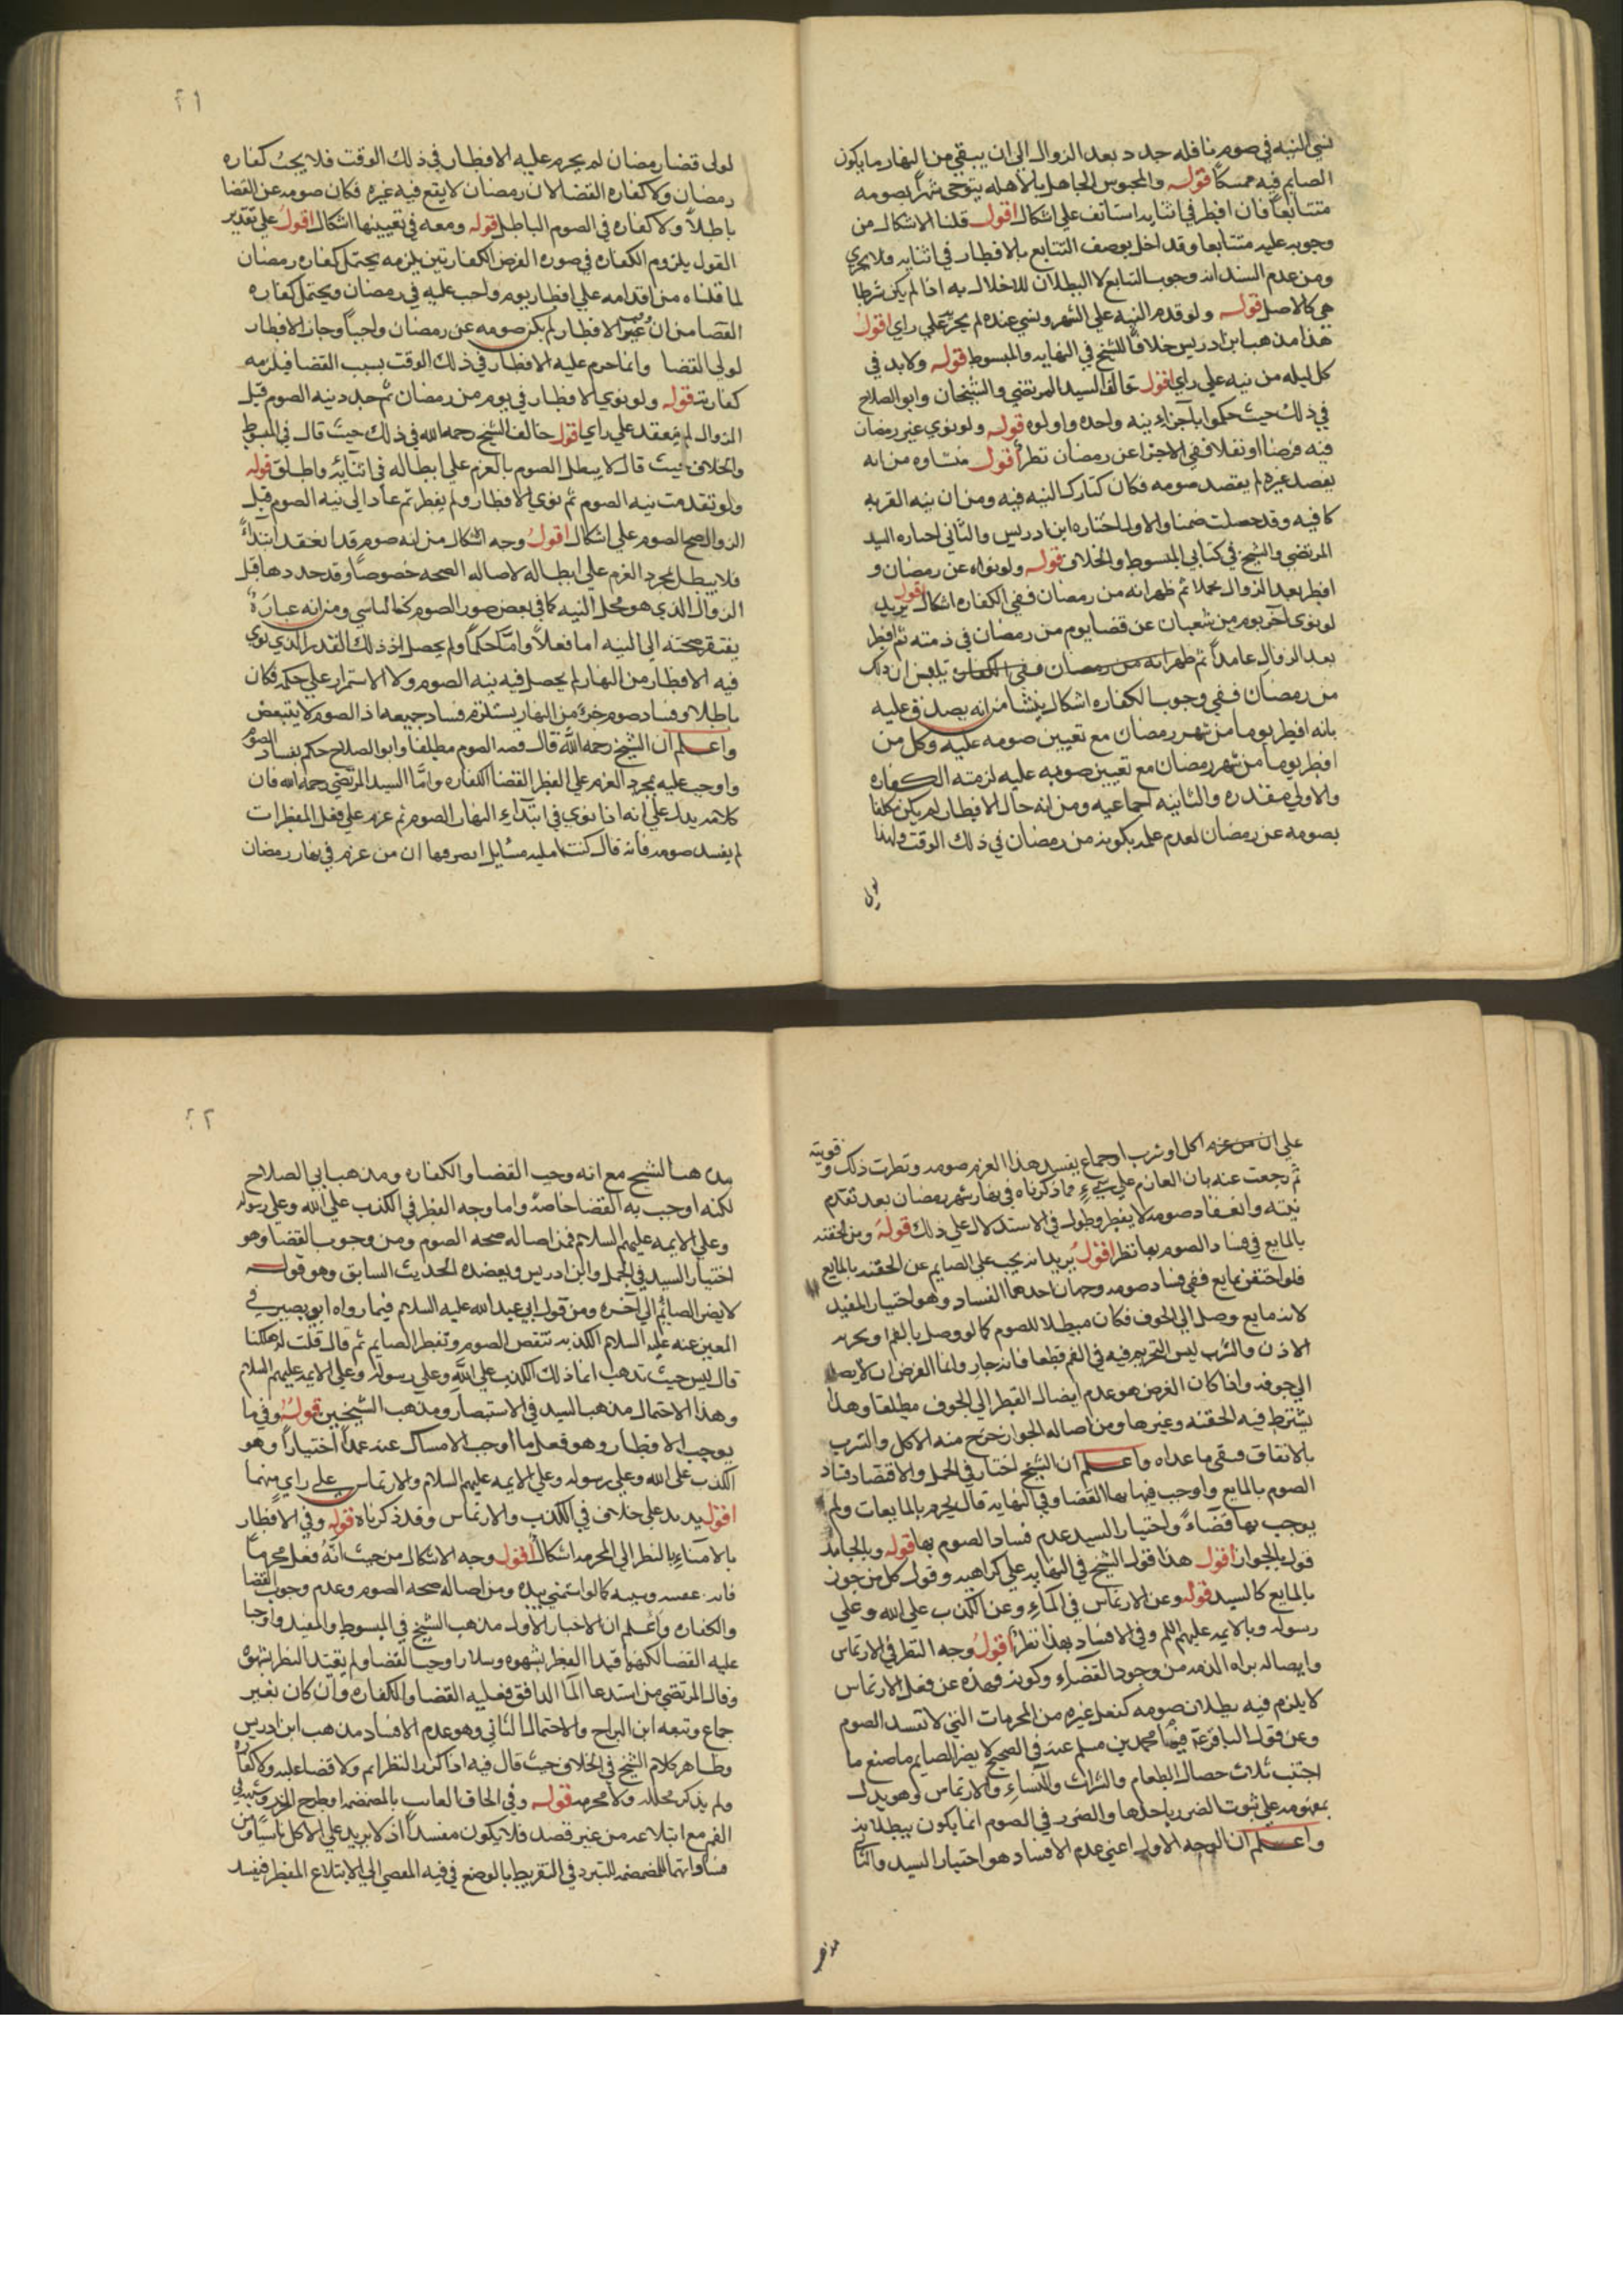 نسي النيه في صوم نافله جدد بعد الزوال الى ان يبقي من النهار ما يكون
الصايم فيه ممسكاً قوله والمحبوس الجاهل بالاهله يتوخى شهراً يصومه
متتابعاً فان افطر في اثنايه استانف على اشكال اقول قلنا الاشكال من
وجوبه عليه متتابعا وقد اخل بوصف التتابع بالافطار في اثنايه فلا يجزي
ومن عدم السند اذ وجوب التتابع لا البطلان للاخلال به اذا لم يكن شرطا
هي كالاصل قوله ولو قدم النيه علي الشهر ونسي عنده لم يجز علي راي اقول
هذا مذهب ابن ادريس خلافا للشيخ في النهايه والمبسوط قوله ولا بد في
كل ليله من نيه علي راي اقول خالف السيد المرتضي والشيخان وابو الصلاح
في ذلك حيث حكموا باجزاء نيه واحده واولوه قوله ولو نوي غير رمضان
فيه فرضا او نفلا ففي الاجزا عن رمضان نظر اقول منشاوه من انه
بقصد غيره لم يقصد صومه فكان كتارك النيه فيه ومن ان نيه القربه
كافيه وقد حصلت ضمنا والاول اختاره ابن ادريس والثاني اختاره السيد
المرتضي والشيخ في كتابي المبسوط والخلاف قوله ولو نواه عن رمضان و
افطر بعد الزوال عملا ثم ظهر انه من رمضان ففي الكفاره اشكال اقول يريد
لو نوى آخر يوم من شعبان عن قضا يوم من رمضان في ذمته ثم افطر
بعد الزوال عامداً ثم ظهر انه من رمضان ففي الكفاره تيقن ان ذلك
من رمضان ففي وجوب الكفاره اشكال ينشا من انه يصدق عليه
بانه افطر يوما من شهر رمضان مع تعيين صومه عليه وكل من
افطر يوما من شهر رمضان مع تعيين صومه عليه لزمته الكفاره
والاولي مقدره والثانيه اجماعيه ومن انه حال الافطار لم يكن مكلفا
بصومه عن رمضان لعدم علمه بكونه من رمضان في ذلك الوقت ولهذا
٢١
لولى قضا رمضان لم يحرم عليه الافطار في ذلك الوقت فلا يجب كفاره
رمضان ولا كفاره القضا لان رمضان لا يقع فيه غيره فكان صومه عن القضا
باطلاً ولا كفاره في الصوم الباطل قوله ومعه في تعيينها اشكال اقول على تقدير
القول بلزوم الكفاره في صوره الفرض الكفارتين يلزمه يحتمل كفاره رمضان
لما قلناه من اقدامه علي افطار يوم واجب عليه في رمضان ويحتمل كفاره
القضا من ان الافطار لم يكن صومه عن رمضان واجباً وجاز الافطار
لولي القضا وانما حرم عليه الافطار في ذلك الوقت بسبب القضا فيلزمه
كفارته قوله ولو نوي الافطار في يوم من رمضان ثم جدد نيه الصوم قبل
الزوال لم ينعقد علي راي اقول خالف الشيخ رحمه الله في ذلك حيث قال في المبسوط
والخلاف حيث قال لا يبطل الصوم بالعزم علي ابطاله في اثنايه واطلق قوله
ولو تقدمت نيه الصوم ثم نوي الافطار ولم يفطر ثم عاد الى نيه الصوم قبل
الزوال صح الصوم علي اشكال اقول وجه اشكال من انه صوم قد انعقد ابتداءً
فلا يبطل بمجرد العزم علي ابطاله لاصاله الصحه خصوصاً وقد جددها قبل
الزوال الذي هو محل النيه كما في بعض صور الصوم كالناسي ومن انه عبادة
يفتقر صحته الي النيه اما فعلاً وامّا حكماً ولم يحصل اذ ذلك القدر الذي نوي
فيه الافطار من النهار لم يحصل فيه نيه الصوم ولا الاستمرار علي حكمه فكان
باطلا وفساد صوم جزءٍ من النهار يستلزم فساد جميعه اذ الصوم لا يتبعض
واعلم ان الشيخ رحمه الله قال فسد الصوم مطلقا وابو الصلاح حكم بفساد الصوم
واوجب عليه بمجرد العزم علي الفطر القضا الكفاره وامّا السيد المرتضي رحمه الله فان
كلامه يدل علي انه اذا نوي في ابتداءِ النهار الصوم ثم عزم علي فعل المفطرات
لم يفسد صومه فانه قال كنت امليه مسايل ان من عزم في نهار رمضان
علي ان من عزم اكل او شرب او جماع يفسد هذا العزم صومه ونظرت ذلك وقويته
ثم رجعت عنه بان العازم علي شيءٍ مما ذكرناه في نهار شهر رمضان بعد تقدم
نيته وانعقاد صومه لا يفطر وطول في الاستدلال علي ذلك قوله ومن الحقنه
بالمايع في فساد الصوم بها نظر اقول يريد انه يجب علي الصايم عن الحقنه بالمايع
فلو احتقن بمايع ففي فساد صومه وجهان احدهما الفساد وهو اختيار المفيد
لانه مايع وصل الي الجوف فكان مبطلا للصوم كما لو وصل بالفم او بحريه
الاذن والشرب ليس التحريم فيه في الفم قطعا فانه جايز وانما الغرض ان لا يصل
الي جوفه واذا كان الغرض هو عدم ايصال المفطر الي الجوف مطلقا وهذا
يشترط فيه الحقنه وغيرها ومن اصاله الجواز خرج منه الاكل والشرب
بالاتفاق فبقي ما عداه واعلم ان الشيخ اختار في الجمل والاقتصاد فساد
الصوم بالمايع واوجب فيها بها القضا وفي النهايه قال يحرم بالمايعات ولم
يوجب بها قضاءً واختيار السيد عدم فساد الصوم بها قوله وبالجامد
قول بالجواز اقول هذا قول الشيخ في النهايه علي كراهيه وقول كل من جوز
بالمايع كالسيد قوله وعن الارتماس في الماءِ وعن الكذب علي الله وعلي
رسوله وبالايمه عليهم السلم وفي الافساد بهذا نظر اقول وجه النظر في الارتماس
واصاله براه الذمه من وجود القضاءِ وكونه عن فعل الارتماس
لا يلزم فيه بطلان صومه كفعل غيره من المحرمات التي لا تفسد الصوم
وعن قول الباقر ع فيما محمد بن مسلم عنه في الصحيح لا يضر الصايم ما صنع ما
اجتنب ثلاث خصال الطعام والشراب والنساءِ والارتماس وهو يدل
بمفهومه علي ثبوت الضرر باحدها والضرر في الصوم انما يكون ببطلانه
واعلم ان الوجه الاول اعني عدم الافساد هو اختيار السيد والثاني
٢٢
مذهب الشيخ مع انه وجب القضا والكفاره ومذهب ابي الصلاح
لكنه اوجب به القضا خاصةً واما وجه الفطر في الكذب علي الله وعلي رسوله
وعلي الايمه عليهم السلام فمن اصاله صحه الصوم ومن وجوب القضا وهو
اختيار السيد في الجمل وابن ادريس ويعضده الحديث السابق وهو قوله
لا يضر الصايم الي آخره ومن قول ابي عبد الله عليه السلام فيما رواه ابو بصير في
المعين عنه عليه السلام الكذبه تنقص الصوم وتفطر الصايم ثم قال قلت له هلكنا
قال ليس حيث تذهب انما ذلك الكذب علي الله وعلي رسوله وعلي الايمه عليهم السلام
وهذا الاحتمال مذهب السيد في الاستبصار ومذهب الشيخين قوله وفي ما
يوجب الافطار وهو فعل ما اوجب الامساك عنه عمداً اختياراً وهو
الكذب علي الله وعلي رسوله وعلي الايمه عليهم السلام والارتماس علي راي منهما
اقول يريد علي خلاف في الكذب والارتماس وقد ذكرناه قوله وفي الافطار
بالامناءِ بالنظر الي المحرمه اشكال اقول وجه الاشكال من حيث انّه فعل محرما
كما لو استمني بيده ومن اصاله صحه الصوم وعدم وجوب القضا
والكفاره واعلم ان الاحتمال الاول مذهب الشيخ في المبسوط والمفيد واوجبا
عليه القضا لكنهما قيدا النظر بشهوه وسلار اوجب القضا ولم يقيد النظر بشهوة
وقال المرتضي من استدعا المآ الدافق فعليه القضا والكفاره وان كان بغير
جماع وتبعه ابن البراج والاحتمال الثاني وهو عدم الافساد مذهب ابن ادريس
وظاهر كلام الشيخ في الخلاف حيث قال فيه اذا كرر النظر اثم ولا قضا عليه ولا كفاره
ولم يذكر محلله ولا محرمه قوله وفي الحاق العابث بالمضمضه او طرح الخرز وشبهه في
الفم مع ابتلاعه من غير قصد فلا يكون مفسداً اذ لا يزيد علي الاكل ناسياً ومن
للمضمضه للتبرد في التفريط بالوضع في فيه المفضي الي الابتلاع المفطر فيفسد